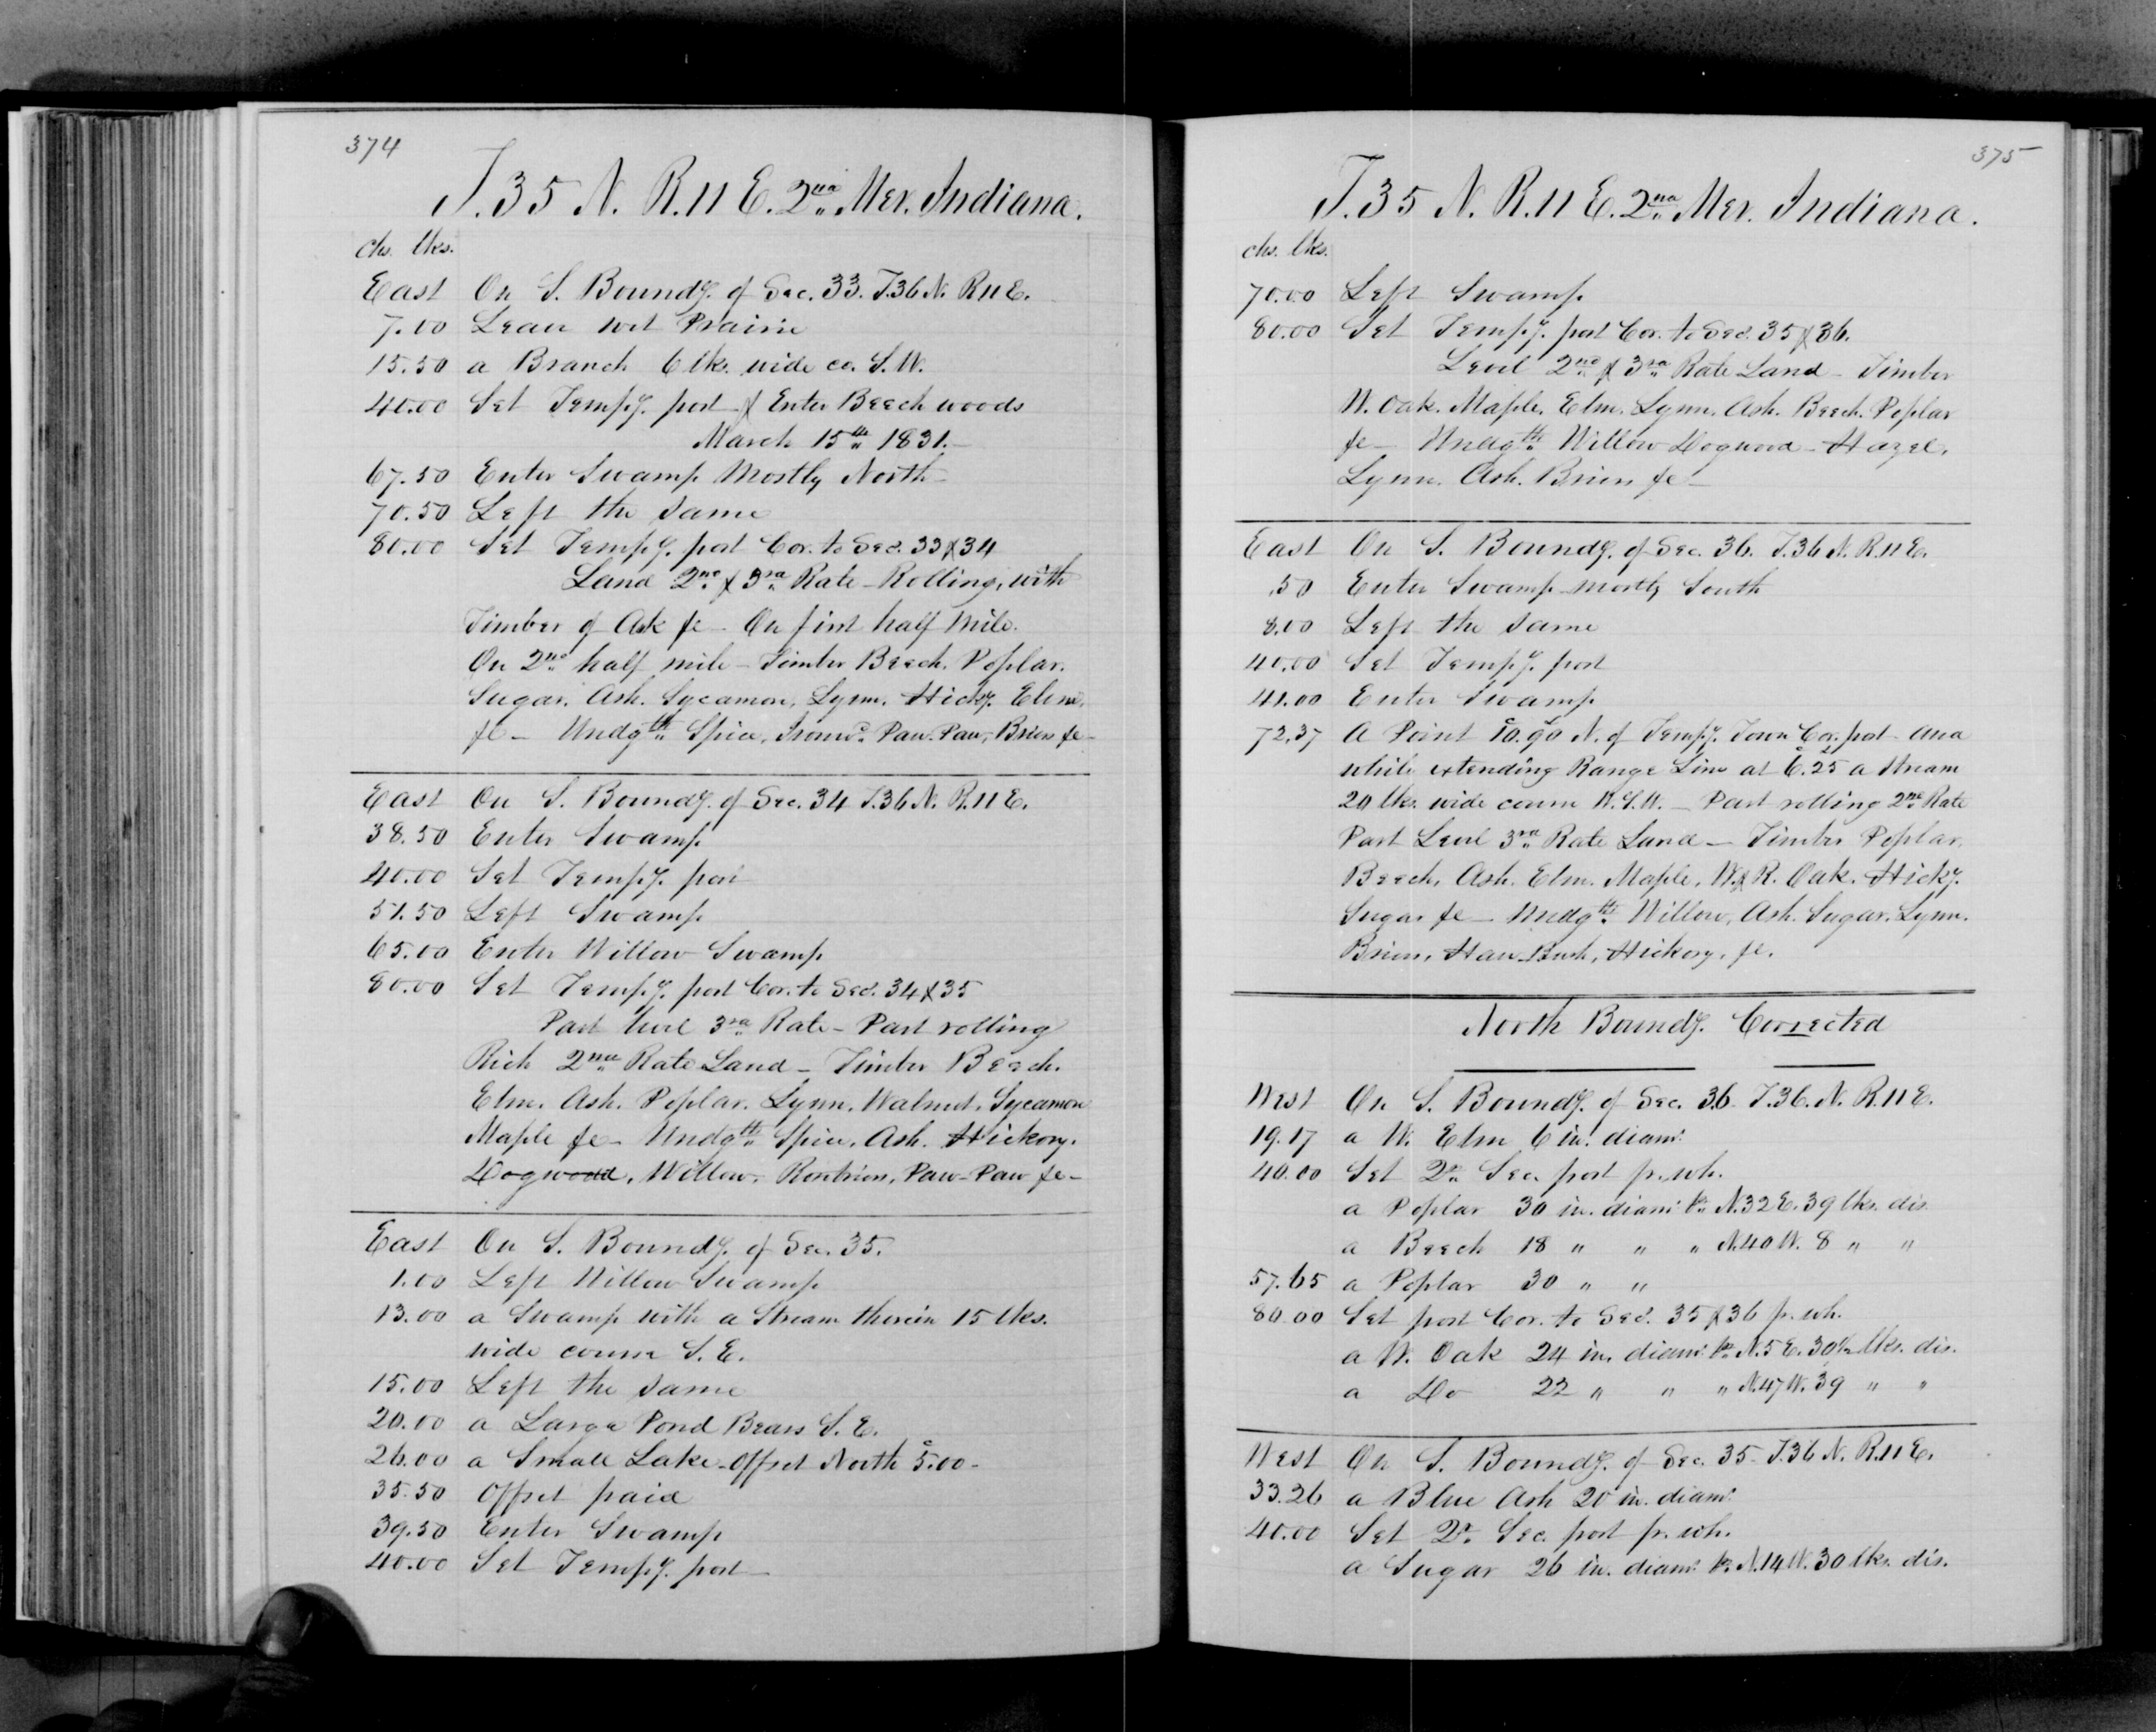 374
T. 35 N. R. 11 E. 2nd Mer. Indiana.
chs. lks.
East On S. Boundy. of Sec. 33. T. 36 N. R. 11 E.
7.00 Leave wet Prairie
15.50 a Branch 6 lks. wide co. S.W.
40.00 Set Tempy. post & Enter Beech woods
March 15th 1831.
67.50 Enter Swamp Mostly North
70.50 Left the same
80.00 Set Tempy. post Cor. to Secs. 33 & 34
Land 2nd & 3rd Rate - Rolling, with
Timber of Oak &c - On first half Mile.
On 2nd half mile - Timber Beech. Poplar.
Sugar. Ash. Sycamore, Lynn. Hicky. Elm,
&c - Undgth. Spice, Ironwd. Paw-Paw, Briers &c -
East On S. Boundy. of Sec. 34 T. 36 N. R. 11 E.
38.50 Enter Swamp
40.00 Set Tempy. post
51.50 Left Swamp
65.00 Enter Willow Swamp
80.00 Set Tempy. post Cor. to Secs. 34 & 35
Part level 3rd Rate - Part rolling
Rich 2nd Rate Land - Timber Beech.
Elm. Ash. Poplar. Lynn. Walnut. Sycamore
Maple &c - Undgth. Spice. Ash. Hickory.
Dogwood, Willow. Paw-Paw &c -
East On S. Boundy. of Sec. 35.
1.00 Left Willow Swamp
13.00 a Swamp with a Stream therein 15 lks.
wide course S.E.
15.00 Left the same
20.00 a Large Pond Bears S.E.
26.00 a Small Lake - Offset North 5.00 c -
35.50 Offset paid
39.50 Enter Swamp
40.00 Set Tempy. post -
375
T. 35 N. R. 11 E. 2nd Mer. Indiana.
chs. lks.
70.00 Left Swamp
80.00 Set Tempy. post Cor. to Secs. 35 & 36.
Level 2nd & 3rd Rate Land - Timber
W. Oak. Maple. Elm. Lynn. Ash. Beech. Poplar
&c - Undgth. Willow Dogwood - Hazel,
Lynn. Ash. Briers &c -
East On S. Boundy. of Sec. 36. T. 36 N. R. 11 E.
.50 Enter Swamp mostly South
8.00 Left the same
40.00 Set Tempy. post
41.00 Enter Swamp
72.37 A Point 10.90 N. of Tempy. Town Cor. post - and
while extending Range Line at 6.25 a Stream
20 lks. wide course W.S.W. - Part rolling 2nd Rate
Part Level 3rd Rate Land - Timber Poplar,
Beech, Ash. Elm. Maple, W. & R. Oak. Hicky.
Sugar &c - Undgth. Willow, Ash. Sugar. Lynn.
Briers, Haw Bush, Hickory, &c.
North Boundy. Corrected
West On S. Boundy. of Sec. 36 T. 36. N. R. 11 E.
19.17 a W. Elm 6 in. diamr.
40.00 Set Qr. Sec. post fr. wh.
a Poplar 30 in. diamr. brs. N. 32 E. 39 lks. dis.
a Beech 18 " " " N. 40 W. 8 " "
57.65 a Poplar 30 " "
80.00 Set post Cor. to Secs. 35 & 36 fr. wh.
a W. Oak 24 in. diamr. brs. N. 5 E. 30½ lks. dis.
a Do 22 " " " N. 47 W. 39 " "
West On S. Boundy. of Sec. 35 - T. 36 N. R. 11 E.
33.26 a Blue Ash 20 in. diamr.
40.00 Set Qr. Sec. post fr. wh.
a Sugar 26 in. diamr. brs. N. 14 W. 30 lks. dis.